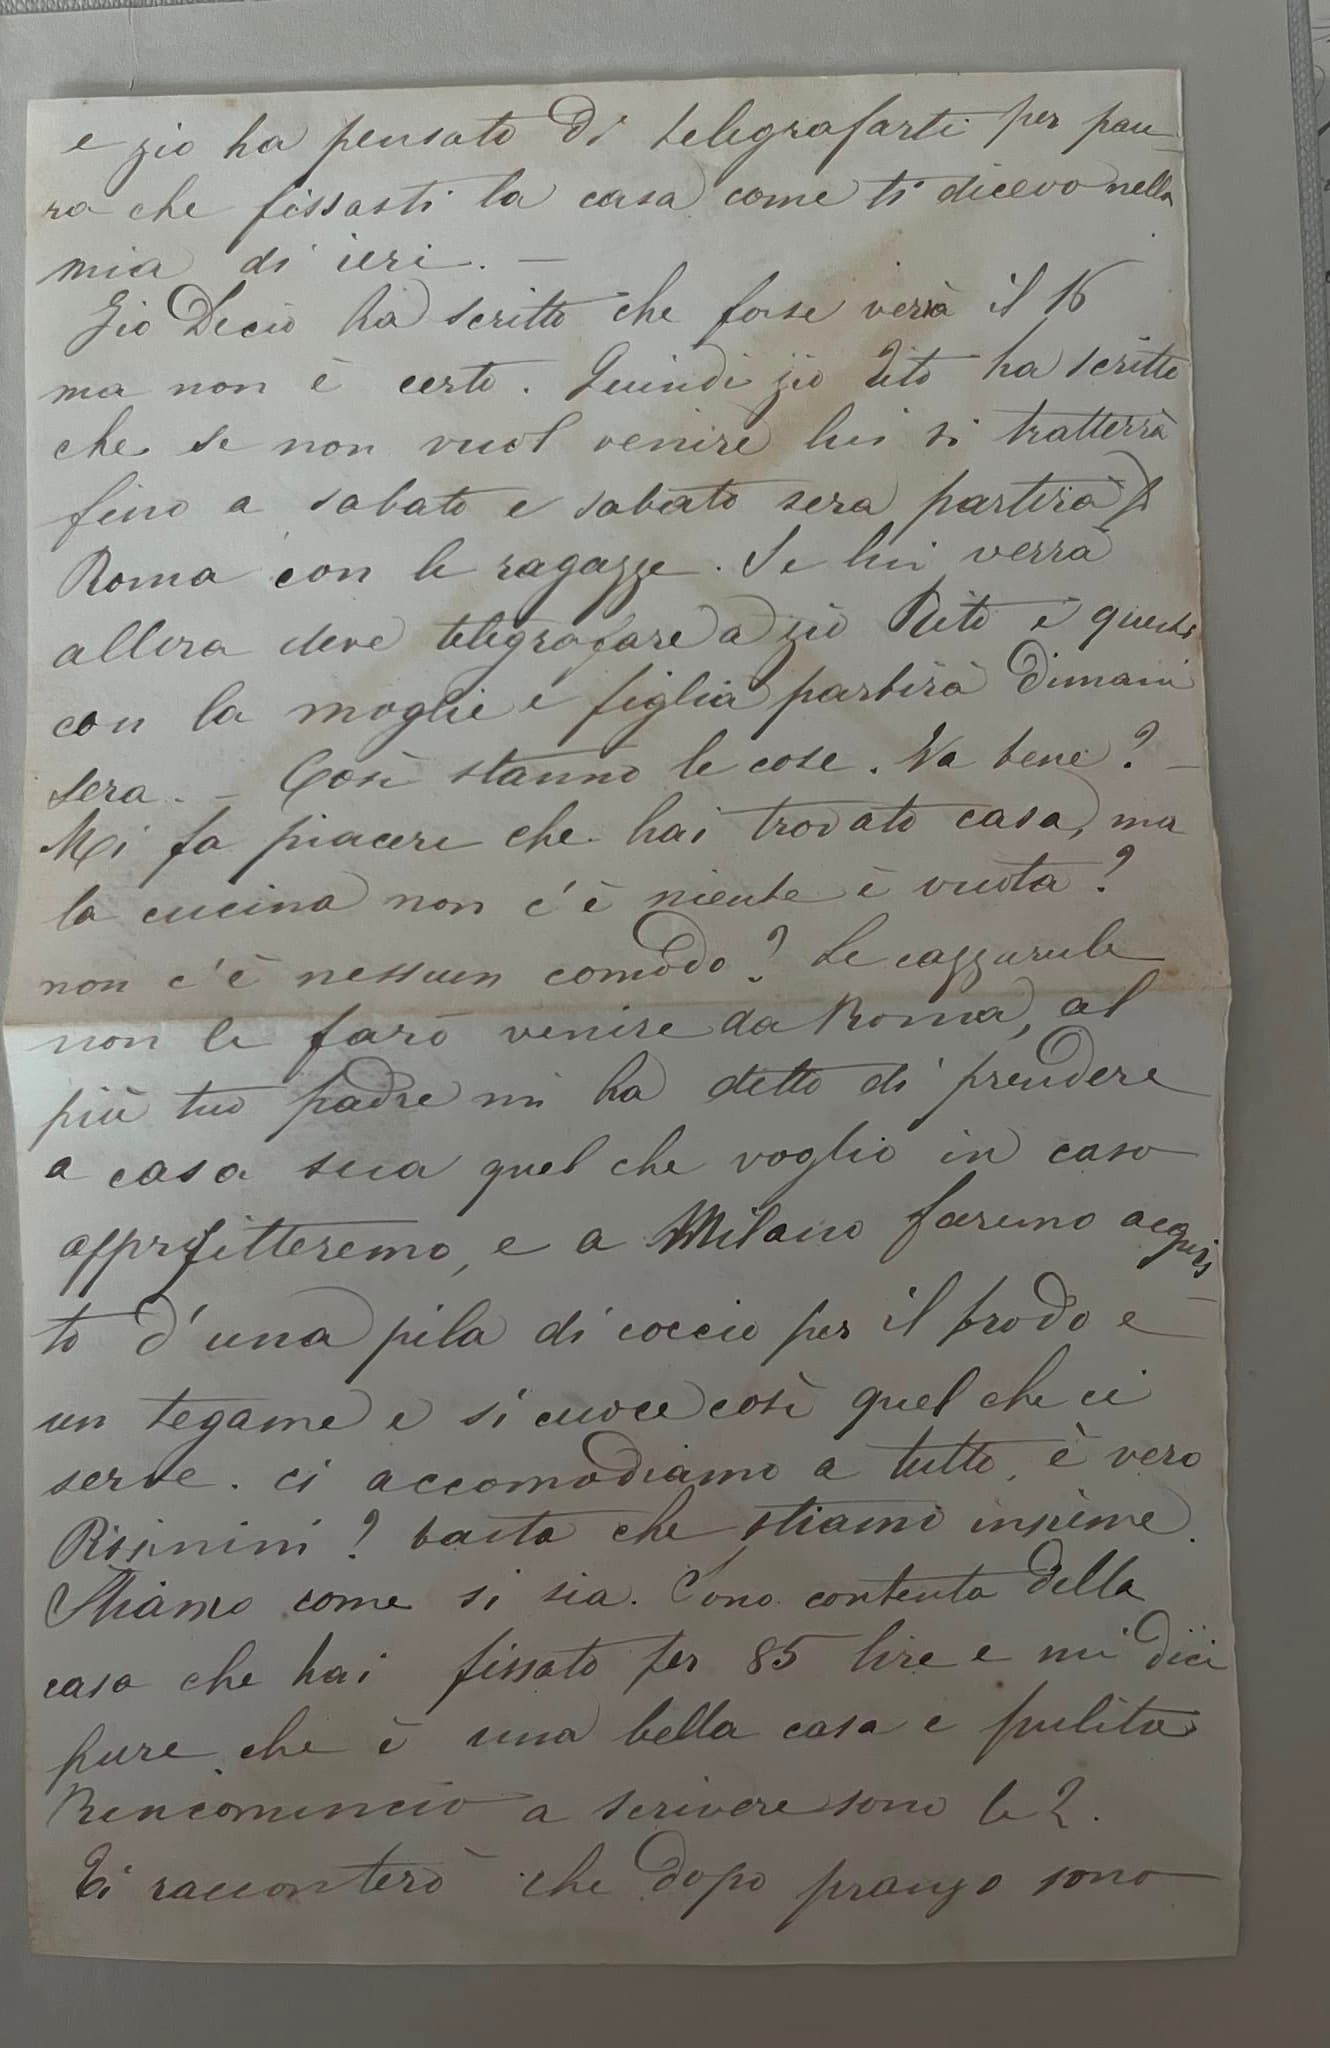 e zio ha pensato di telegrafarti per pau-
ra che fissasti la casa come ti dicevo nella
mia di ieri. —
Zio Decio ha scritto che forse verrà il 16
ma non è certo. Quindi zio Tito ha scritto
che se non vuol venire lui si tratterrà
fino a sabato e sabato sera partirà p
Roma con le ragazze. Se lui verrà
allora deve telegrafare a zio Tito e questi
con la moglie e figlia partirà dimani
sera. — Così stanno le cose. Va bene? —
Mi fa piacere che hai trovato casa, ma
la cucina non c'è niente è vuota?
non c'è nessun comodo? Le cazzurule
non le farò venire da Roma, al
più tuo padre mi ha detto di prendere
a casa sua quel che voglio in caso
approfitteremo, e a Milano faremo acquis-
to d'una pila di coccio per il brodo e
un tegame e si cuoce così quel che ci
serve. ci accomodiamo a tutto, è vero
? basta che stiamo insieme.
Stiamo come si sia. Sono contenta della
casa che hai fissato per 85 lire e mi dici
pure che è una bella casa e pulita
Rincomincio a scrivere sono le 2.
Ti racconterò che dopo pranzo sono